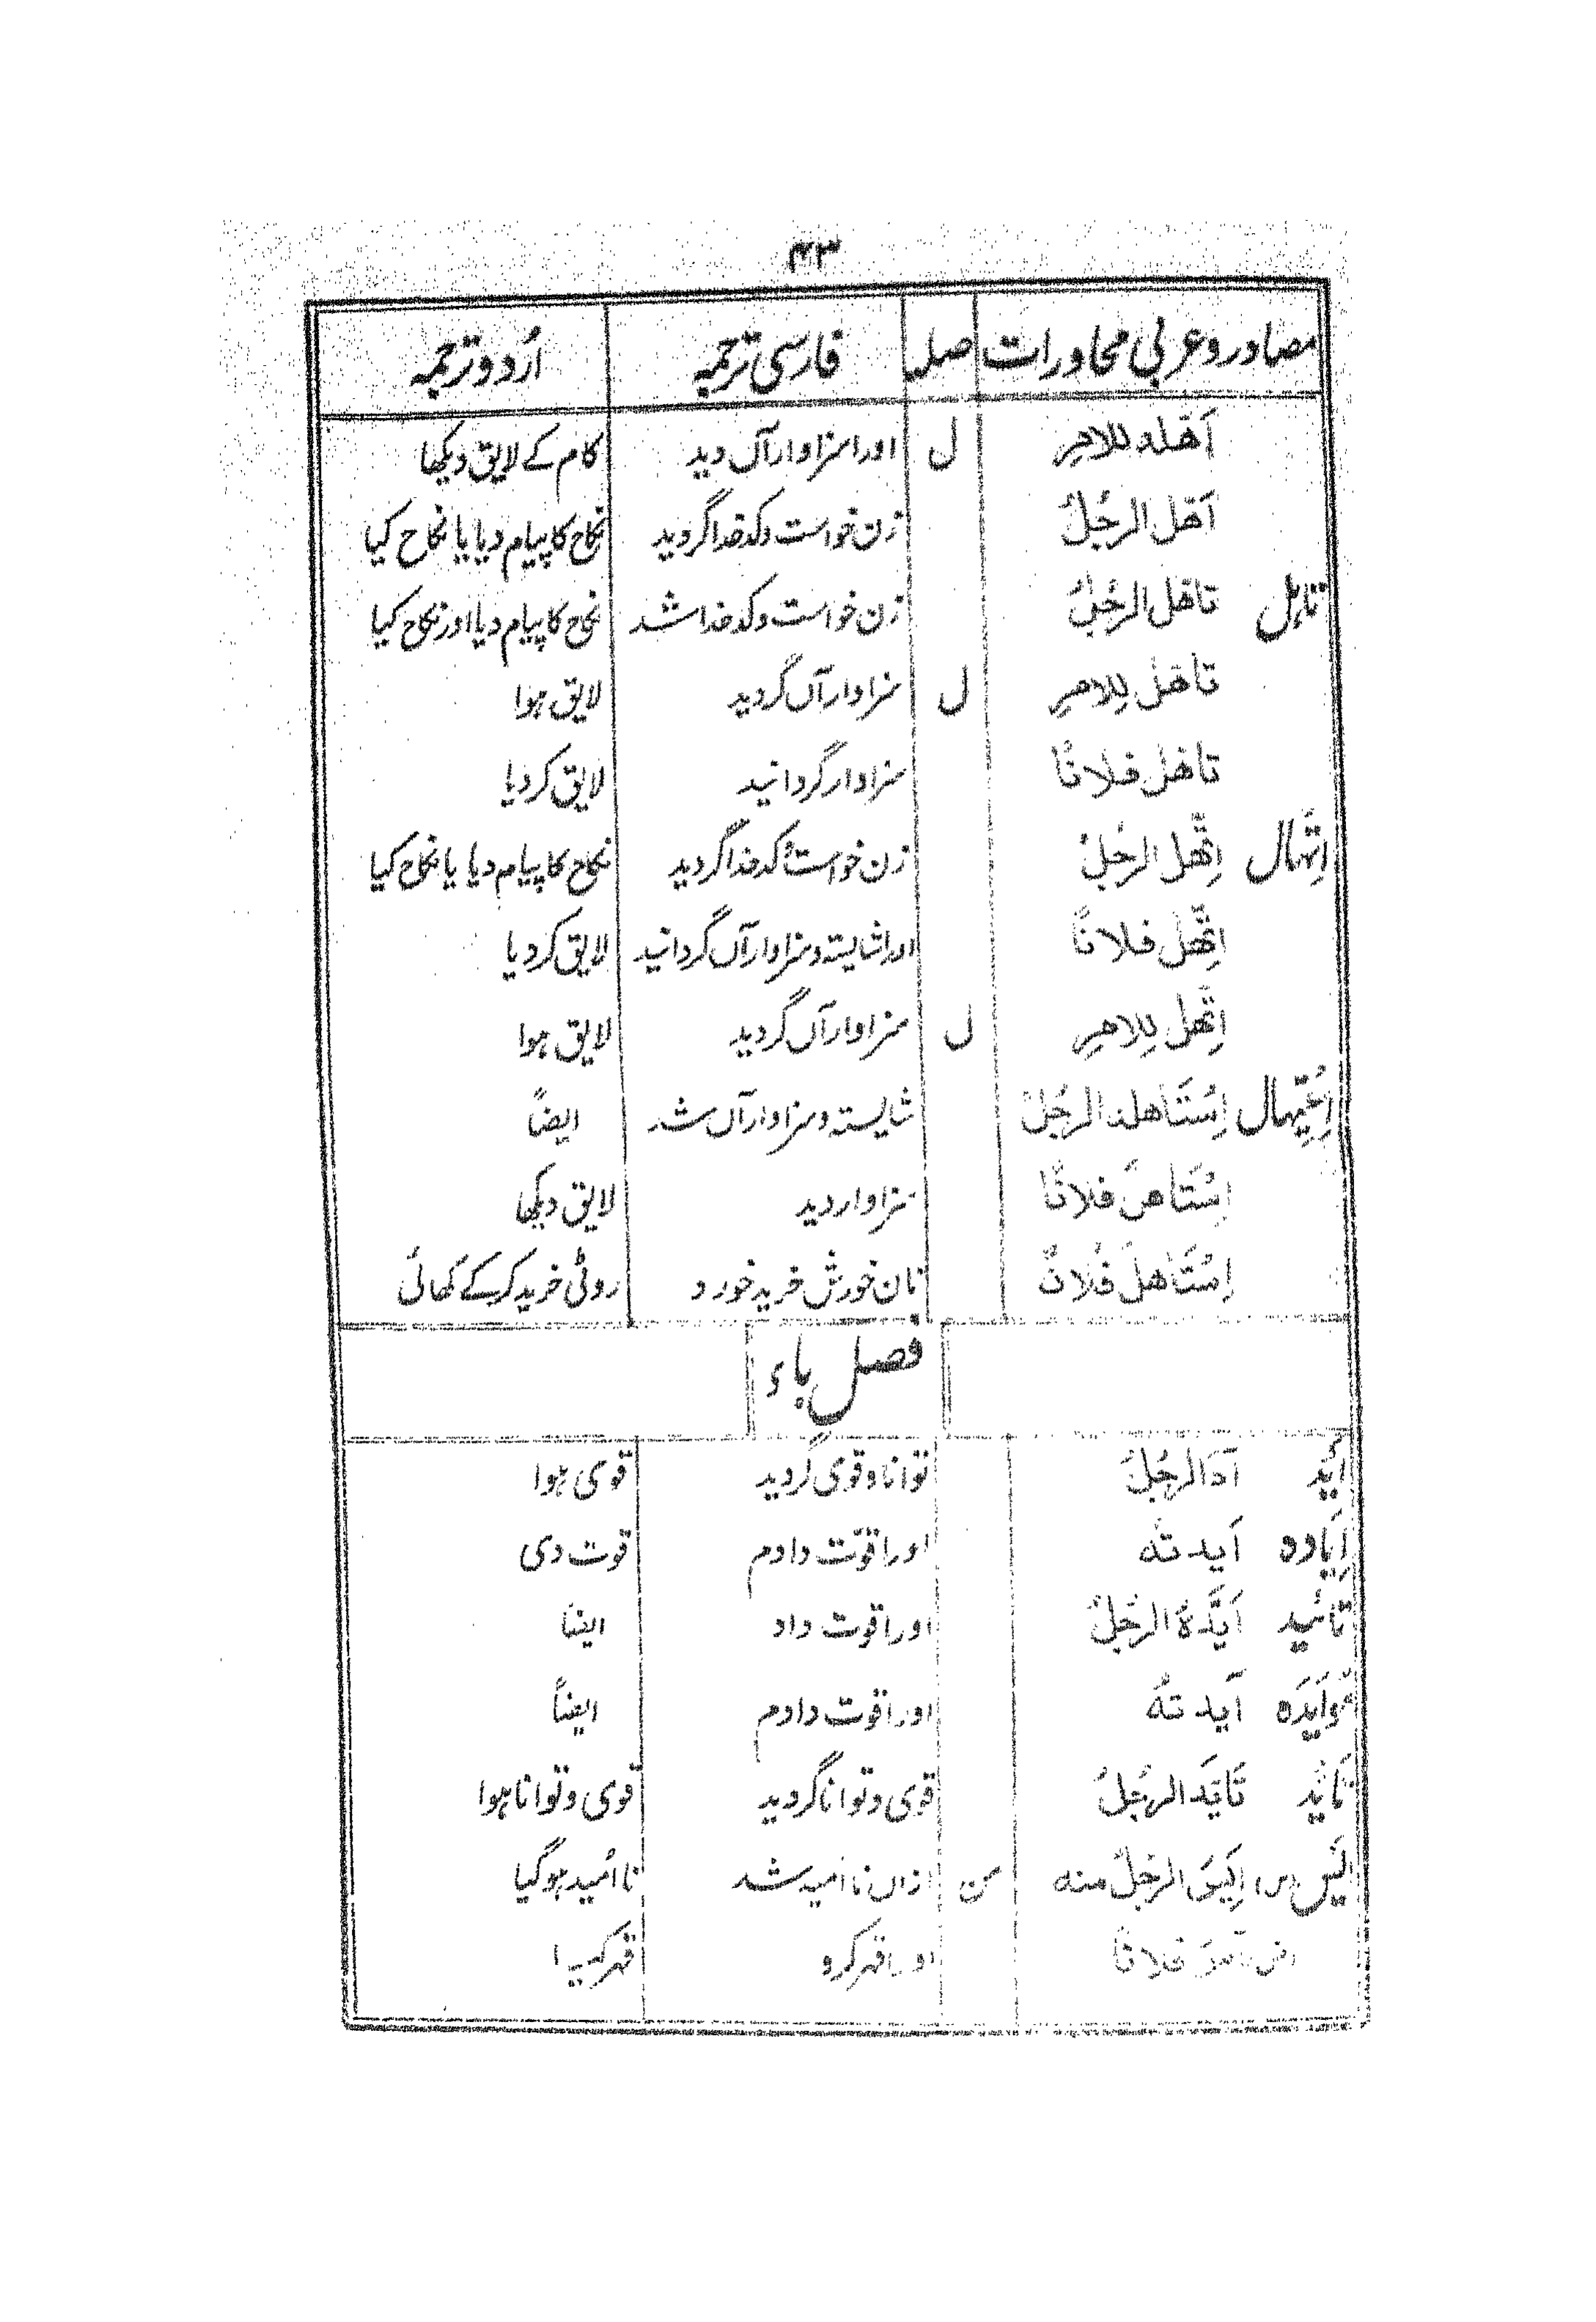 ۴۳
مصادر و عربی محاورات صلہ فارسی ترجمہ اُردو ترجمہ
اَھلہ للامرِ ل اورا سزاوار آں دید کام کے لایق دیکھا
اَھل الرجُلُ زن خواست وکدخدا گردید نکاح کا پیام دیا یا نکاح کیا
تاہل تاھل الرجُلُ زن خواست وکدخدا شد نکاح کا پیام دیا اور نکاح کیا
تاھل لِلامرِ ل سزاوار آں گردید لایق ہوا
تاھل فلاناً سزاوار گردانید لایق کردیا
اِتّہال اِتّھل الرجُلُ زن خواست کدخدا گردید نکاح کا پیام دیا یا نکاح کیا
اِتّھل فلاناً اورا شایستہ و سزاوار آں گردانید لایق کردیا
اِتّھل لِلامرِ ل سزاوار آں گردید لایق ہوا
اِسْتَاھلہ الرجُلُ شایستہ و سزاوار آں شد ایضاً
فلاناً سزاوار دید لایق دیکھا
اِسْتَاھلَ فُلانٌ نان خورش خرید خورد روٹی خرید کرکے کھائی
فصل یاء
اَیْد آدَالرجُلُ توانا و قوی گردید قوی ہوا
اِیادہ آید تہ اورا قوّت دادم قوت دی
تائید اَیَّدَہُ الرجُلُ اورا قوت داد ایضاً
مُوایَدَہ آید تہُ اورا قوت دادم ایضاً
تَایُّد تَایَّدَ الرجُلُ قوی و توانا گردید قوی و توانا ہوا
(س) اَیِسَ الرجُلُ منہ من ازاں نا امید شد نا اُمید ہوگیا
فلاناً اورا قہر کرد قہر کیا